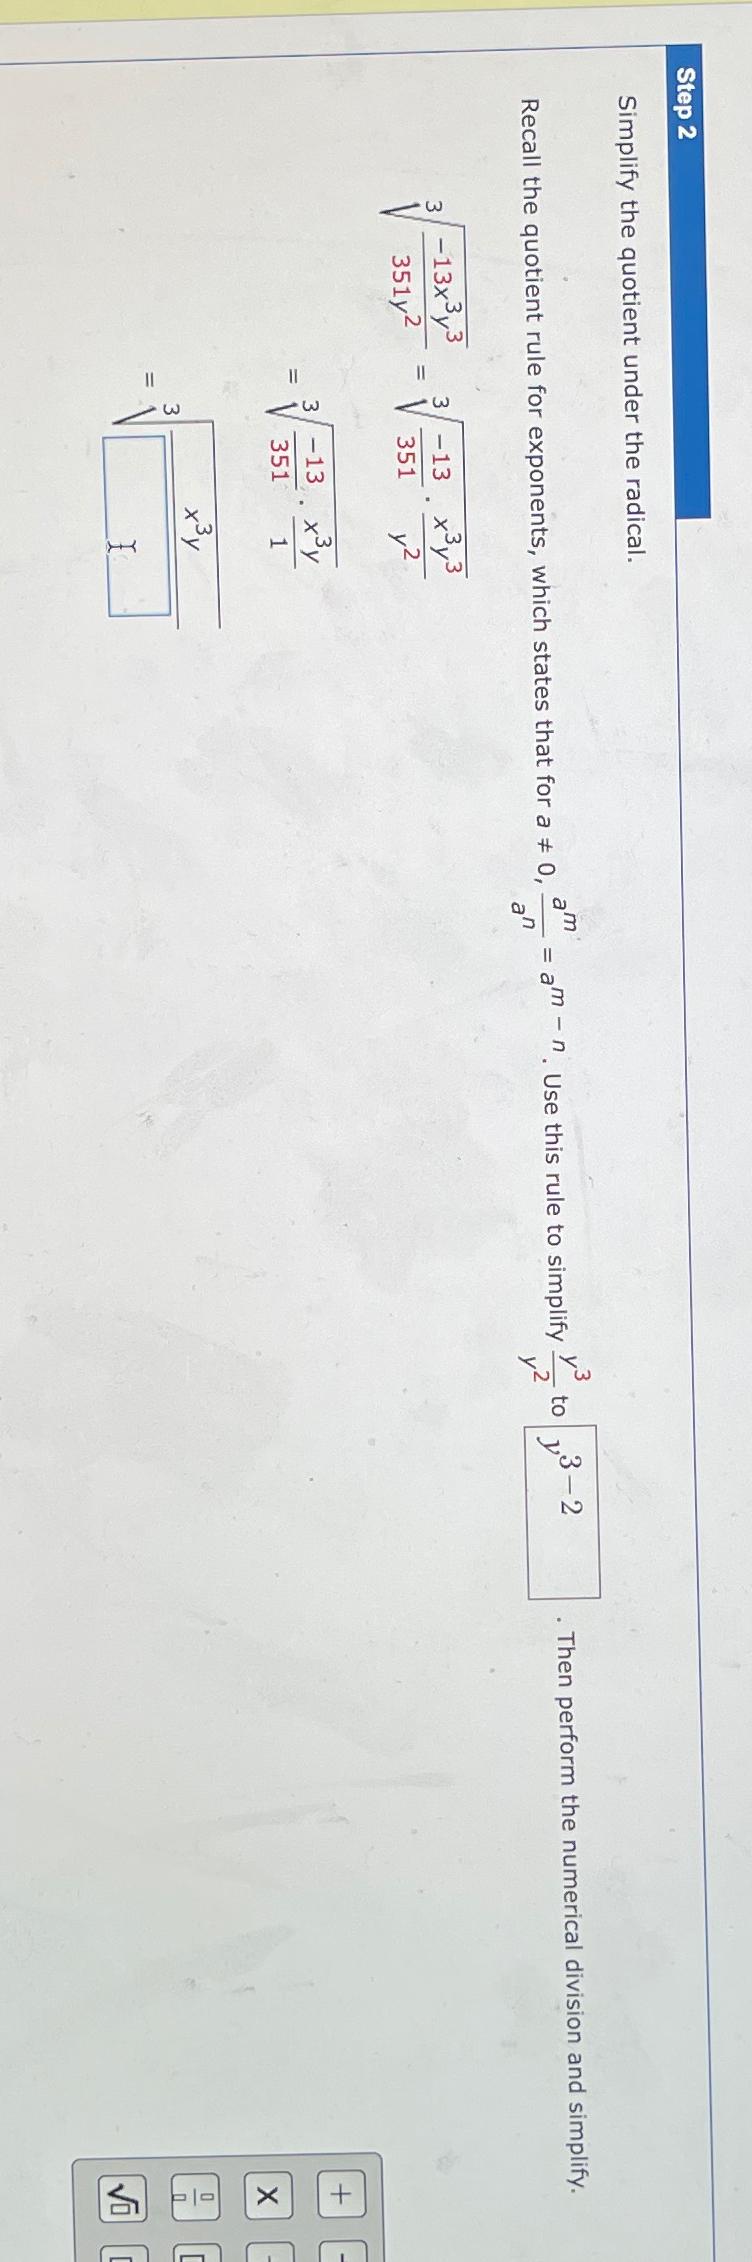 Step 2
Simplify the quotient under the radical.
Recall the quotient rule for exponents, which states that for a ≠ 0, a^m/a^n = a^(m − n). Use this rule to simplify y^3/y^2 to y^(3−2). Then perform the numerical division and simplify.
∛(−13x^3y^3/351y^2) = ∛(−13/351 · x^3y^3/y^2)
= ∛(−13/351 · x^3y/1)
= ∛(x^3y/ )
+ −
×
√